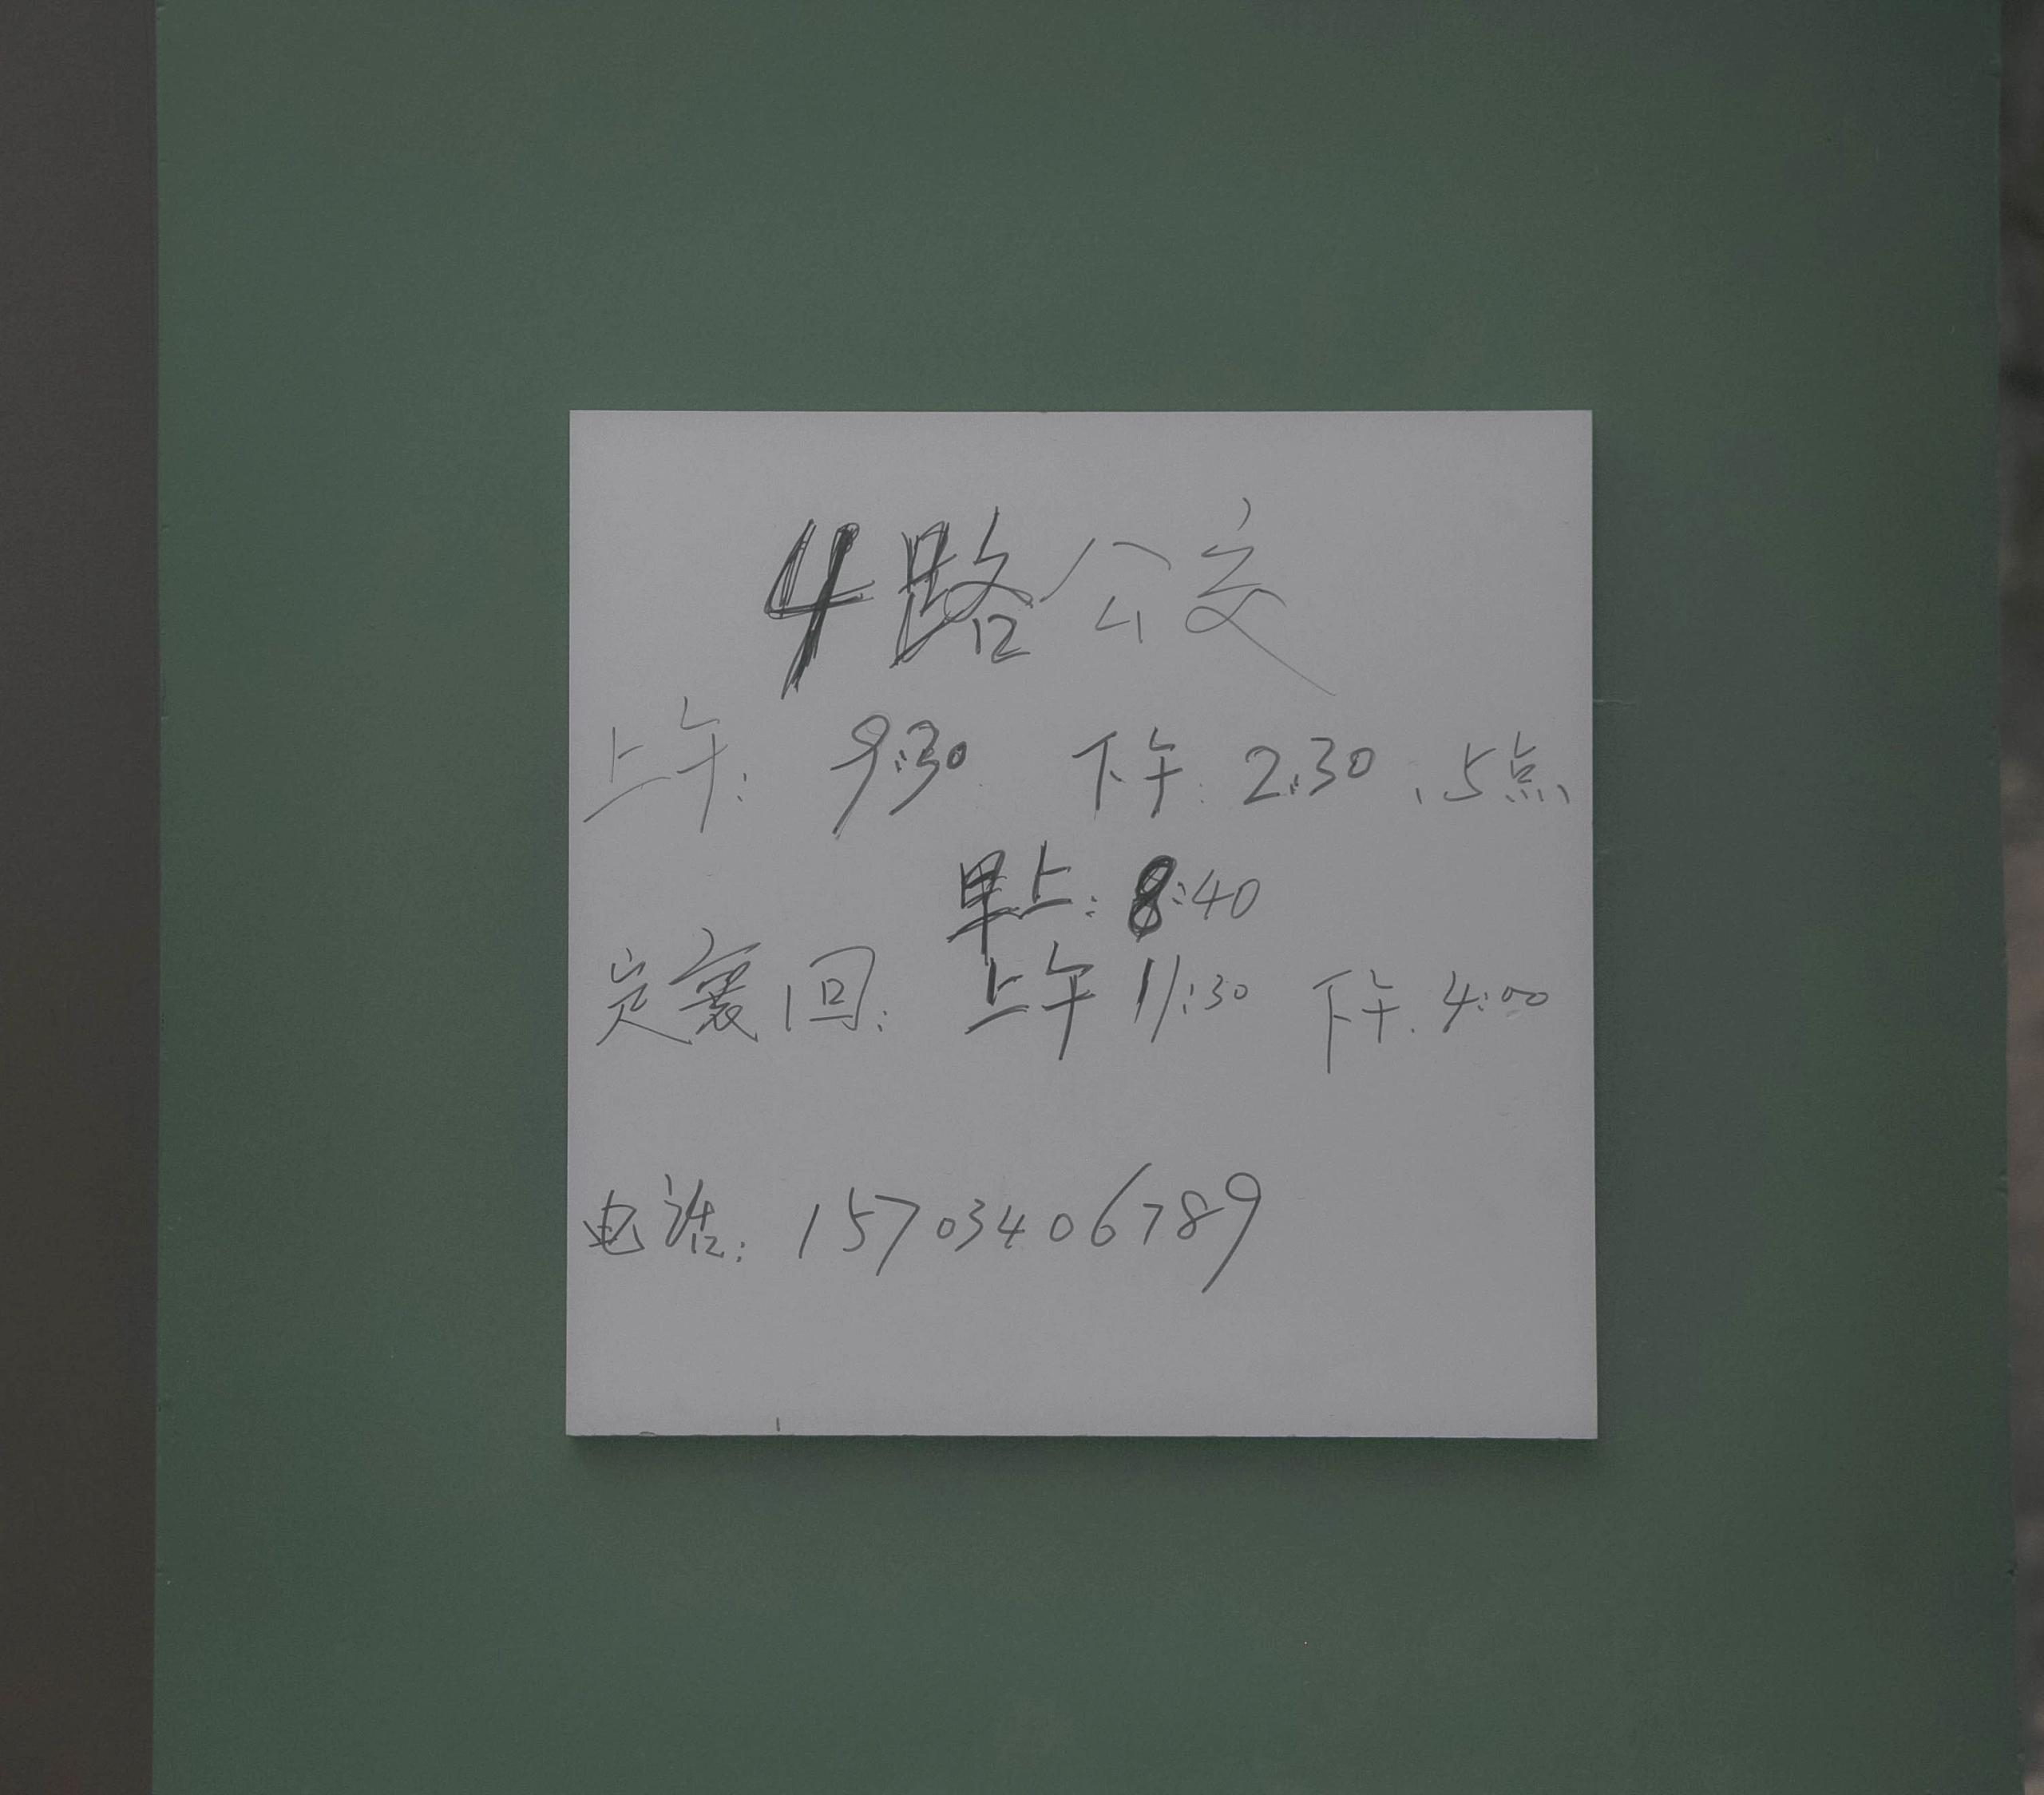 4路公交
上午: 9:30 下午: 2:30、5点
早上: 8:40
定襄回: 上午 11:30 下午: 4:00
电话: 15703406789